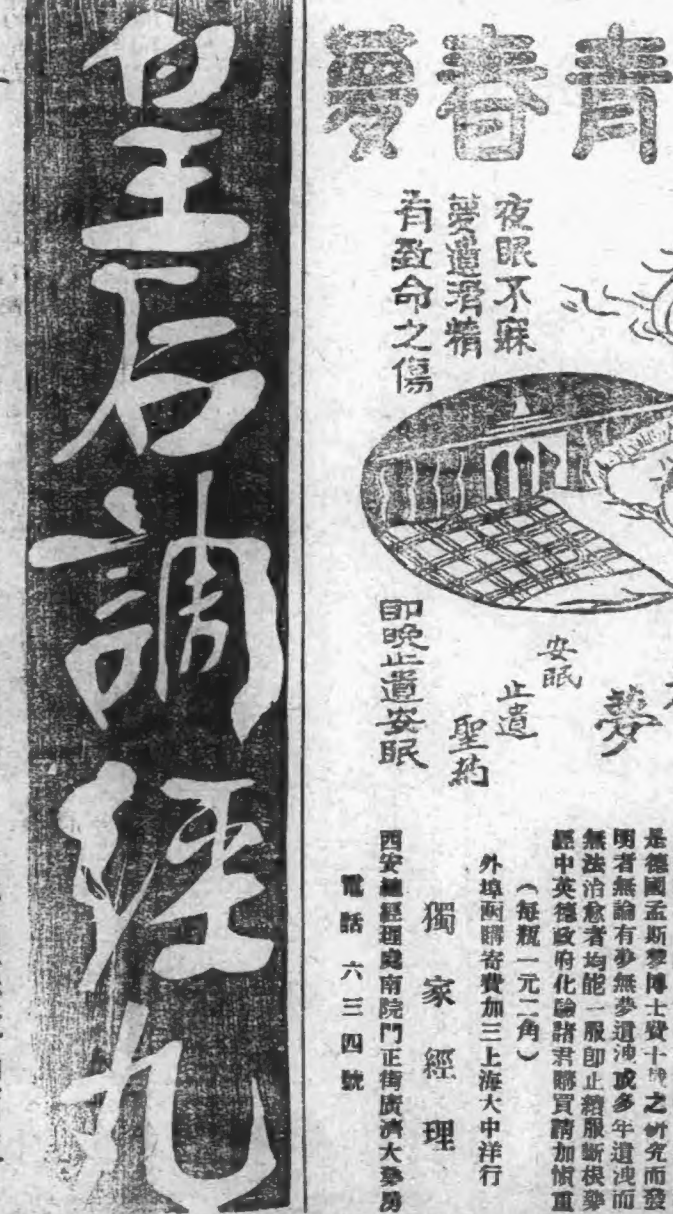 青春夢
夜眠不寐
夢遺滑精
有致命之傷
夢
安眠
止遺
聖約
即晚止遺安眠
是德國孟斯黎博士費十餘之研究而發
明者無論有夢無夢遺洩或多年遺洩而
無法治愈者均能一服即止續服斷根藥
經中英德政府化驗諸君購買請加慎重
(每瓶一元二角)
外埠函購寄費加三上海大中洋行
獨家經理
西安總經理處南院門正街廣濟大藥房
電話六三四號
皇后調經丸